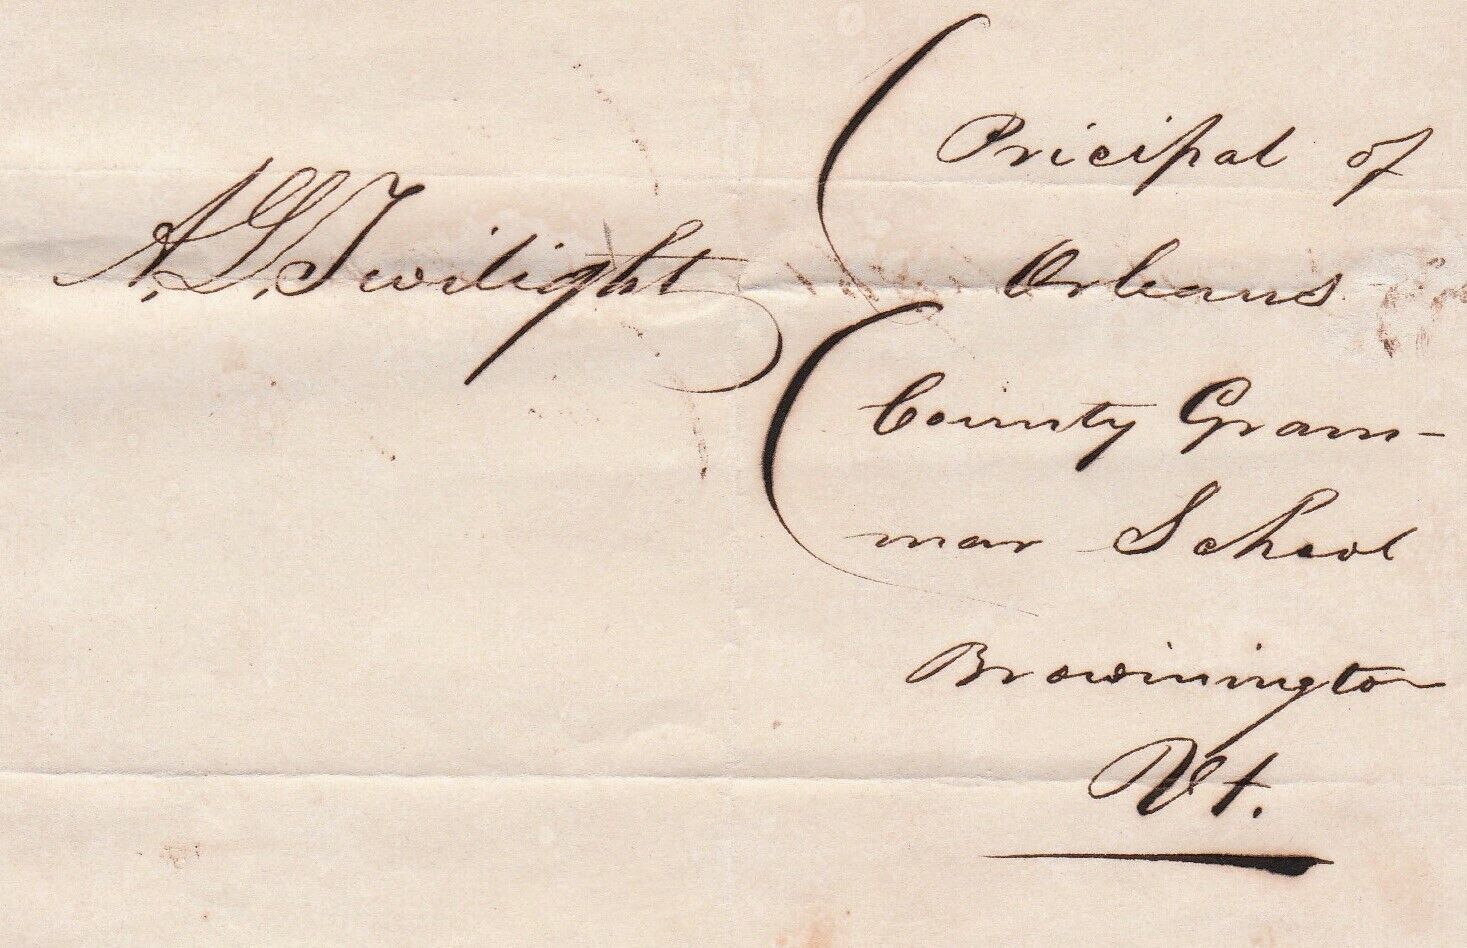 A. L. Twilight
Pricipal of
Orleans
County Gram-
mar School
Browinington
Vt.